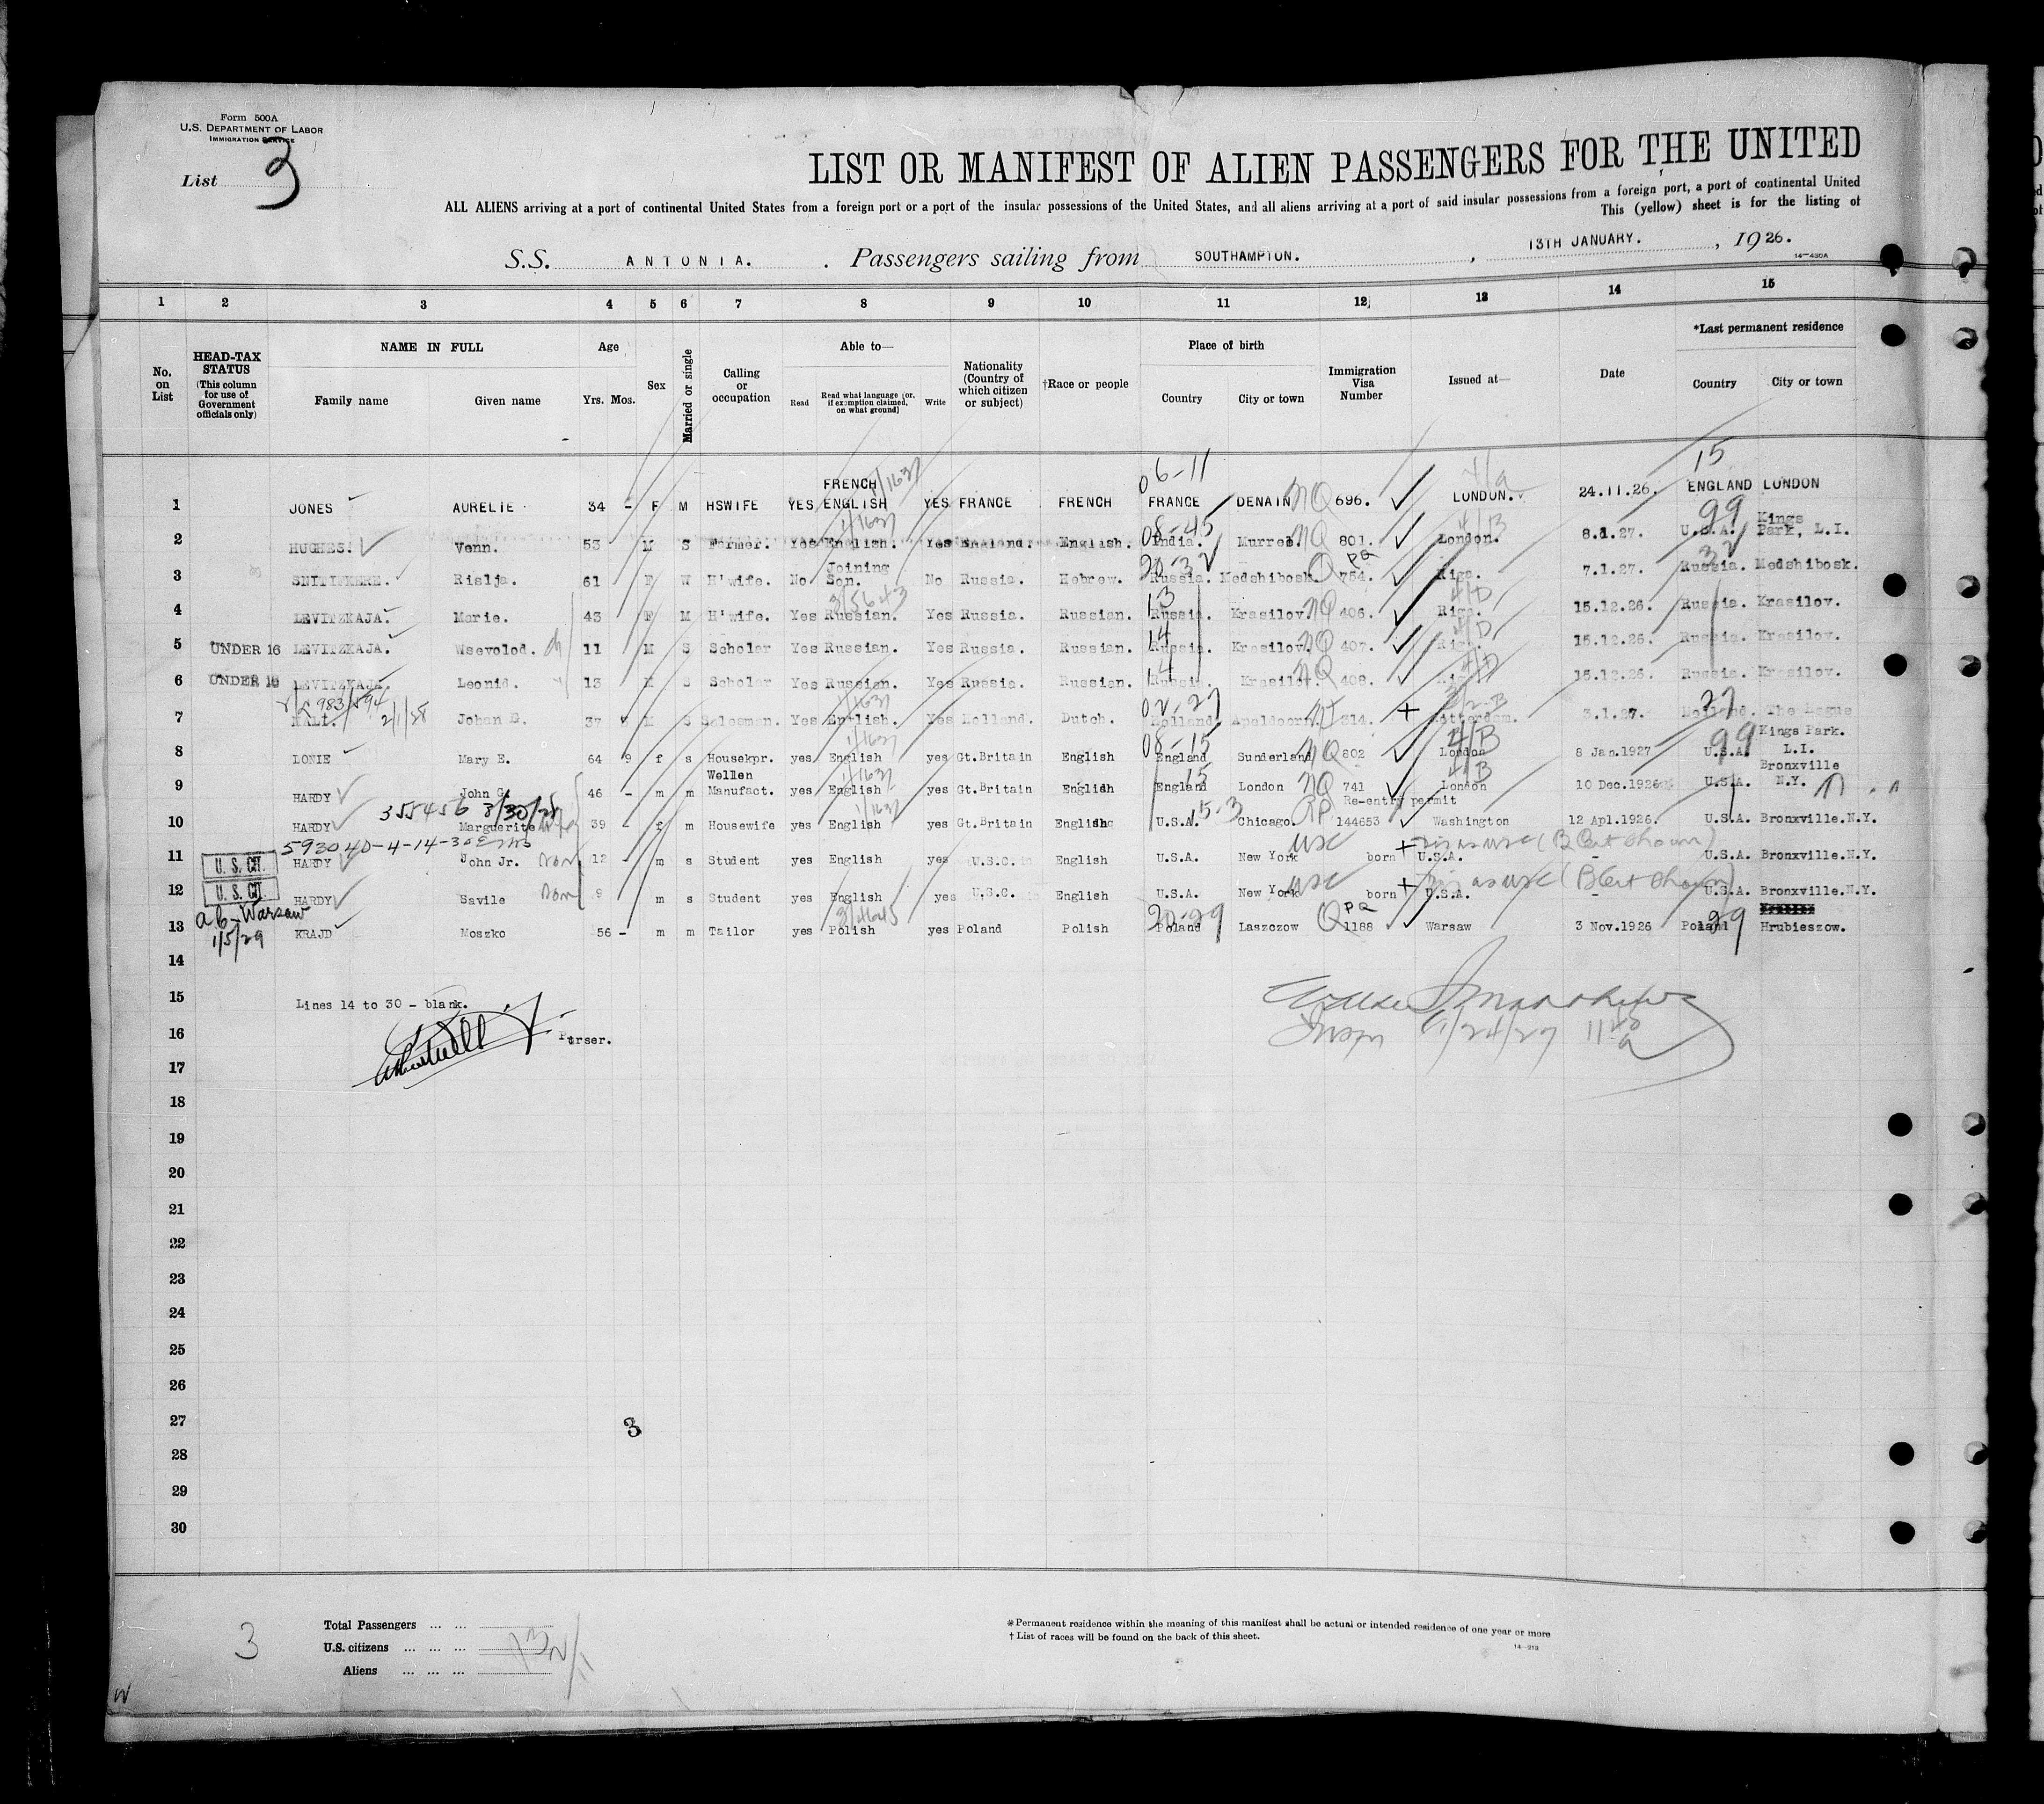 Form 500A
U.S. DEPARTMENT OF LABOR
IMMIGRATION SERVICE
List 3
LIST OR MANIFEST OF ALIEN PASSENGERS FOR THE UNITED
ALL ALIENS arriving at a port of continental United States from a foreign port or a port of the insular possessions of the United States, and all aliens arriving at a port of said insular possessions from a foreign port, a port of continental United
This (yellow) sheet is for the listing of
S.S. ANTONIA. . Passengers sailing from SOUTHAMPTON. , 13TH JANUARY. , 1926.
14—430A
1 2 3 4 5 6 7 8 9 10 11 12 13 14 15
No. on List
HEAD-TAX STATUS (This column for use of Government officials only)
NAME IN FULL
Family name Given name
Age
Yrs. Mos.
Sex
Married or single
Calling or occupation
Able to—
Read Read what language (or, if exemption claimed, on what ground) Write
Nationality (Country of which citizen or subject)
†Race or people
Place of birth
Country City or town
Immigration Visa Number
Issued at—
Date
*Last permanent residence
Country City or town
06-11 15
1 JONES AURELIE 34 - F M HSWIFE YES FRENCH ENGLISH YES FRANCE FRENCH FRANCE DENAIN NQ 696. LONDON. 24.11.26. ENGLAND LONDON
1/1637 08-45 4/B 99
2 HUGHES. Venn. 53 M S Farmer. Yes English. Yes England. English. India. Murree. NQ 801. London. 8.1.27. U.S.A. Kings Park, L.I.
20-32 PQ 32
3 Rislja. 61 F W H'wife. No Joining Son. No Russia. Hebrew. Russia. Medshibosk. Q 754. Riga. 7.1.27. Russia. Medshibosk.
13 4/D
4 LEVITZKAJA. Marie. 43 F M H'wife. Yes Russian. Yes Russia. Russian. Russia. Krasilov. NQ 406. Riga. 15.12.26. Russia. Krasilov.
14 4/D
5 UNDER 16 LEVITZKAJA. Wsevolod. 11 M S Scholar Yes Russian. Yes Russia. Russian. Russia. Krasilov. NQ 407. Riga. 15.12.26. Russia. Krasilov.
14 4/D
6 UNDER 16 LEVITZKAJA. Leonid. 13 M S Scholar Yes Russian. Yes Russia. Russian. Russia. Krasilov. NQ 408. Riga. 15.12.26. Russia. Krasilov.
983/594 2/1/28 1/1637 02-27 27
7 Johan E. 37 M S Salesman. Yes English. Yes Holland. Dutch. Holland. Apeldoorn. 314. Rotterdam. 3.1.27. Holland. The Hague
1/1637 08-15 4/B 99
8 LONIE Mary E. 64 9 f s Housekpr. yes English yes Gt.Britain English England Sunderland NQ 802 London 8 Jan.1927 U.S.A. Kings Park. L.I.
1/1637 15 4/B
9 HARDY John G. 46 - m m Wollen Manufact. yes English yes Gt.Britain English England London NQ 741 London 10 Dec.1926 U.S.A. Bronxville N.Y.
355456 3/30/28 1/1637 15-3 RP Re-entry permit
10 HARDY Marguerite wife 39 - f m Housewife yes English yes Gt.Britain English U.S.A. Chicago. 144653 Washington 12 Apl.1926. U.S.A. Bronxville.N.Y.
593040-4-14-30 USC
11 U. S. CIT. HARDY John Jr. son 12 - m s Student yes English yes U.S.C. English U.S.A. New York born U.S.A. - U.S.A. Bronxville.N.Y.
USC as USC (B Cert shown)
12 U. S. CIT. HARDY Savile son 9 m s Student yes English yes U.S.C. English U.S.A. New York born U.S.A. - U.S.A. Bronxville.N.Y.
Warsaw 1/5/29 20-29 PQ 29
13 KRAJD Moszko 56 - m m Tailor yes Polish yes Poland Polish Poland Laszczow Q 1188 Warsaw 3 Nov.1926 Poland Hrubieszow.
14
15 Lines 14 to 30 - blank.
16 Purser.
Inspr 1/24/27 11
17
18
19
20
21
22
23
24
25
26
27 3
28
29
30
3
Total Passengers ... ... 13
U.S. citizens ... ... ... 2
Aliens ... ... ... 11
*Permanent residence within the meaning of this manifest shall be actual or intended residence of one year or more
†List of races will be found on the back of this sheet.
14—213